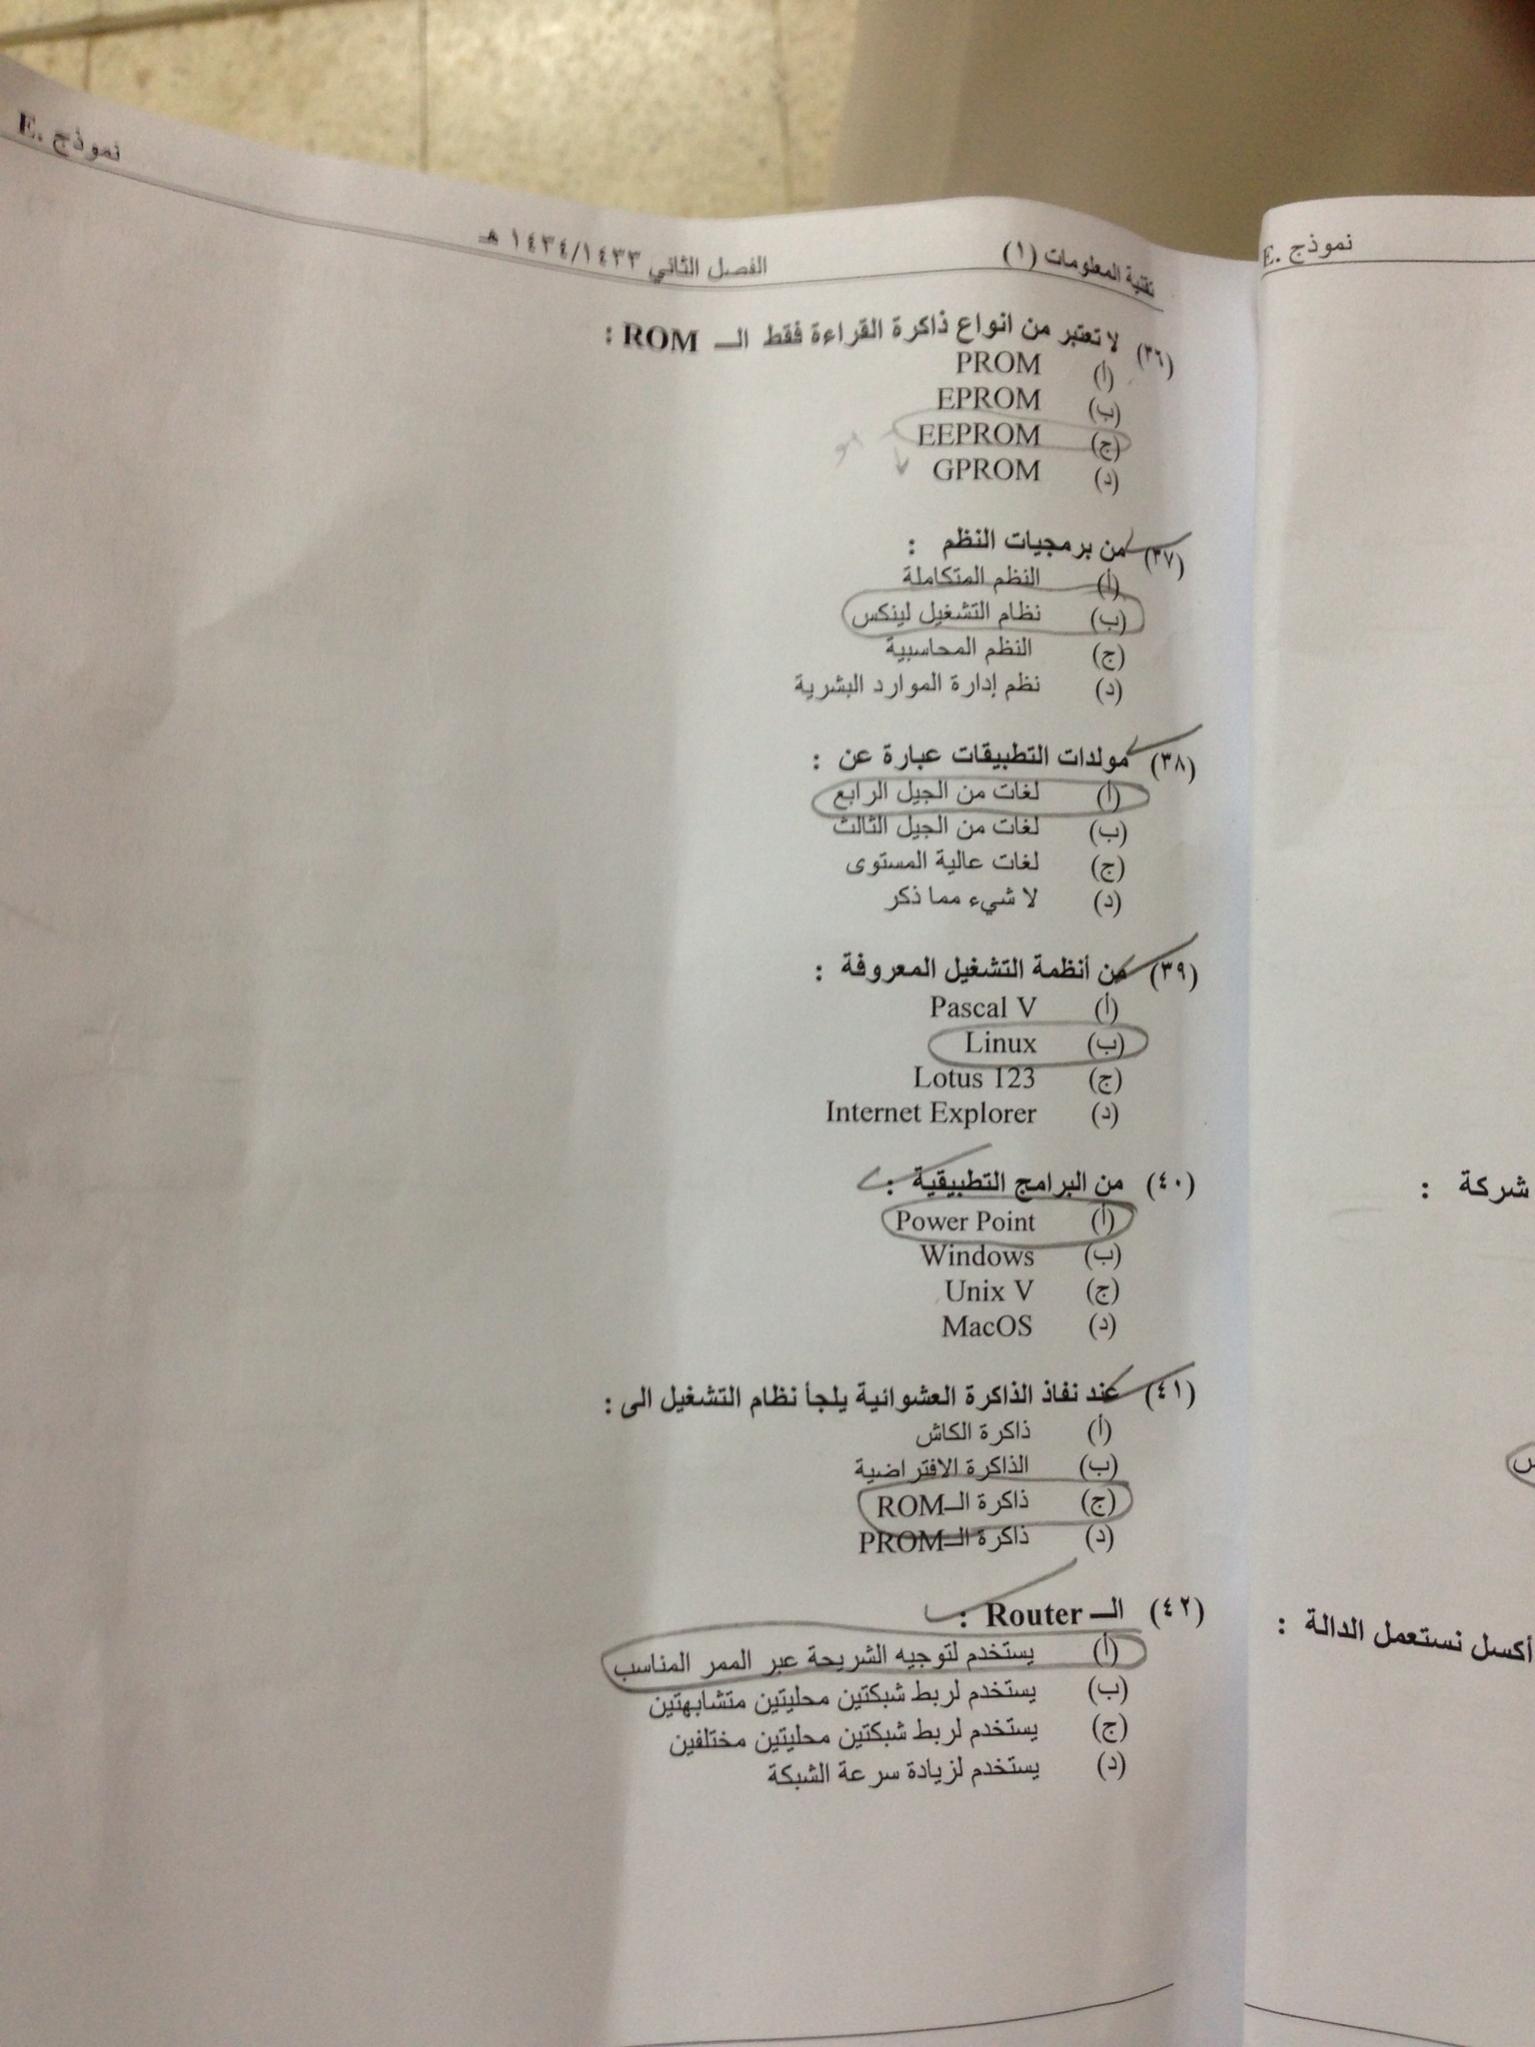 نموذج .E
تقنية المعلومات (١)
الفصل الثاني ١٤٣٤/١٤٣٣ هـ
(٣٦) لا تعتبر من انواع ذاكرة القراءة فقط الــ ROM :
(أ) PROM
(ب) EPROM
(ج) EEPROM
(د) GPROM
(٣٧) من برمجيات النظم :
(أ) النظم المتكاملة
(ب) نظام التشغيل لينكس
(ج) النظم المحاسبية
(د) نظم إدارة الموارد البشرية
(٣٨) مولدات التطبيقات عبارة عن :
(أ) لغات من الجيل الرابع
(ب) لغات من الجيل الثالث
(ج) لغات عالية المستوى
(د) لا شيء مما ذكر
(٣٩) من أنظمة التشغيل المعروفة :
(أ) Pascal V
(ب) Linux
(ج) Lotus 123
(د) Internet Explorer
(٤٠) من البرامج التطبيقية :
(أ) Power Point
(ب) Windows
(ج) Unix V
(د) MacOS
(٤١) عند نفاذ الذاكرة العشوائية يلجأ نظام التشغيل الى :
(أ) ذاكرة الكاش
(ب) الذاكرة الافتراضية
(ج) ذاكرة الــROM
(د) ذاكرة الــPROM
(٤٢) الــ Router :
(أ) يستخدم لتوجيه الشريحة عبر الممر المناسب
(ب) يستخدم لربط شبكتين محليتين متشابهتين
(ج) يستخدم لربط شبكتين محليتين مختلفين
(د) يستخدم لزيادة سرعة الشبكة
نموذج .E
شركة :
أكسل نستعمل الدالة :